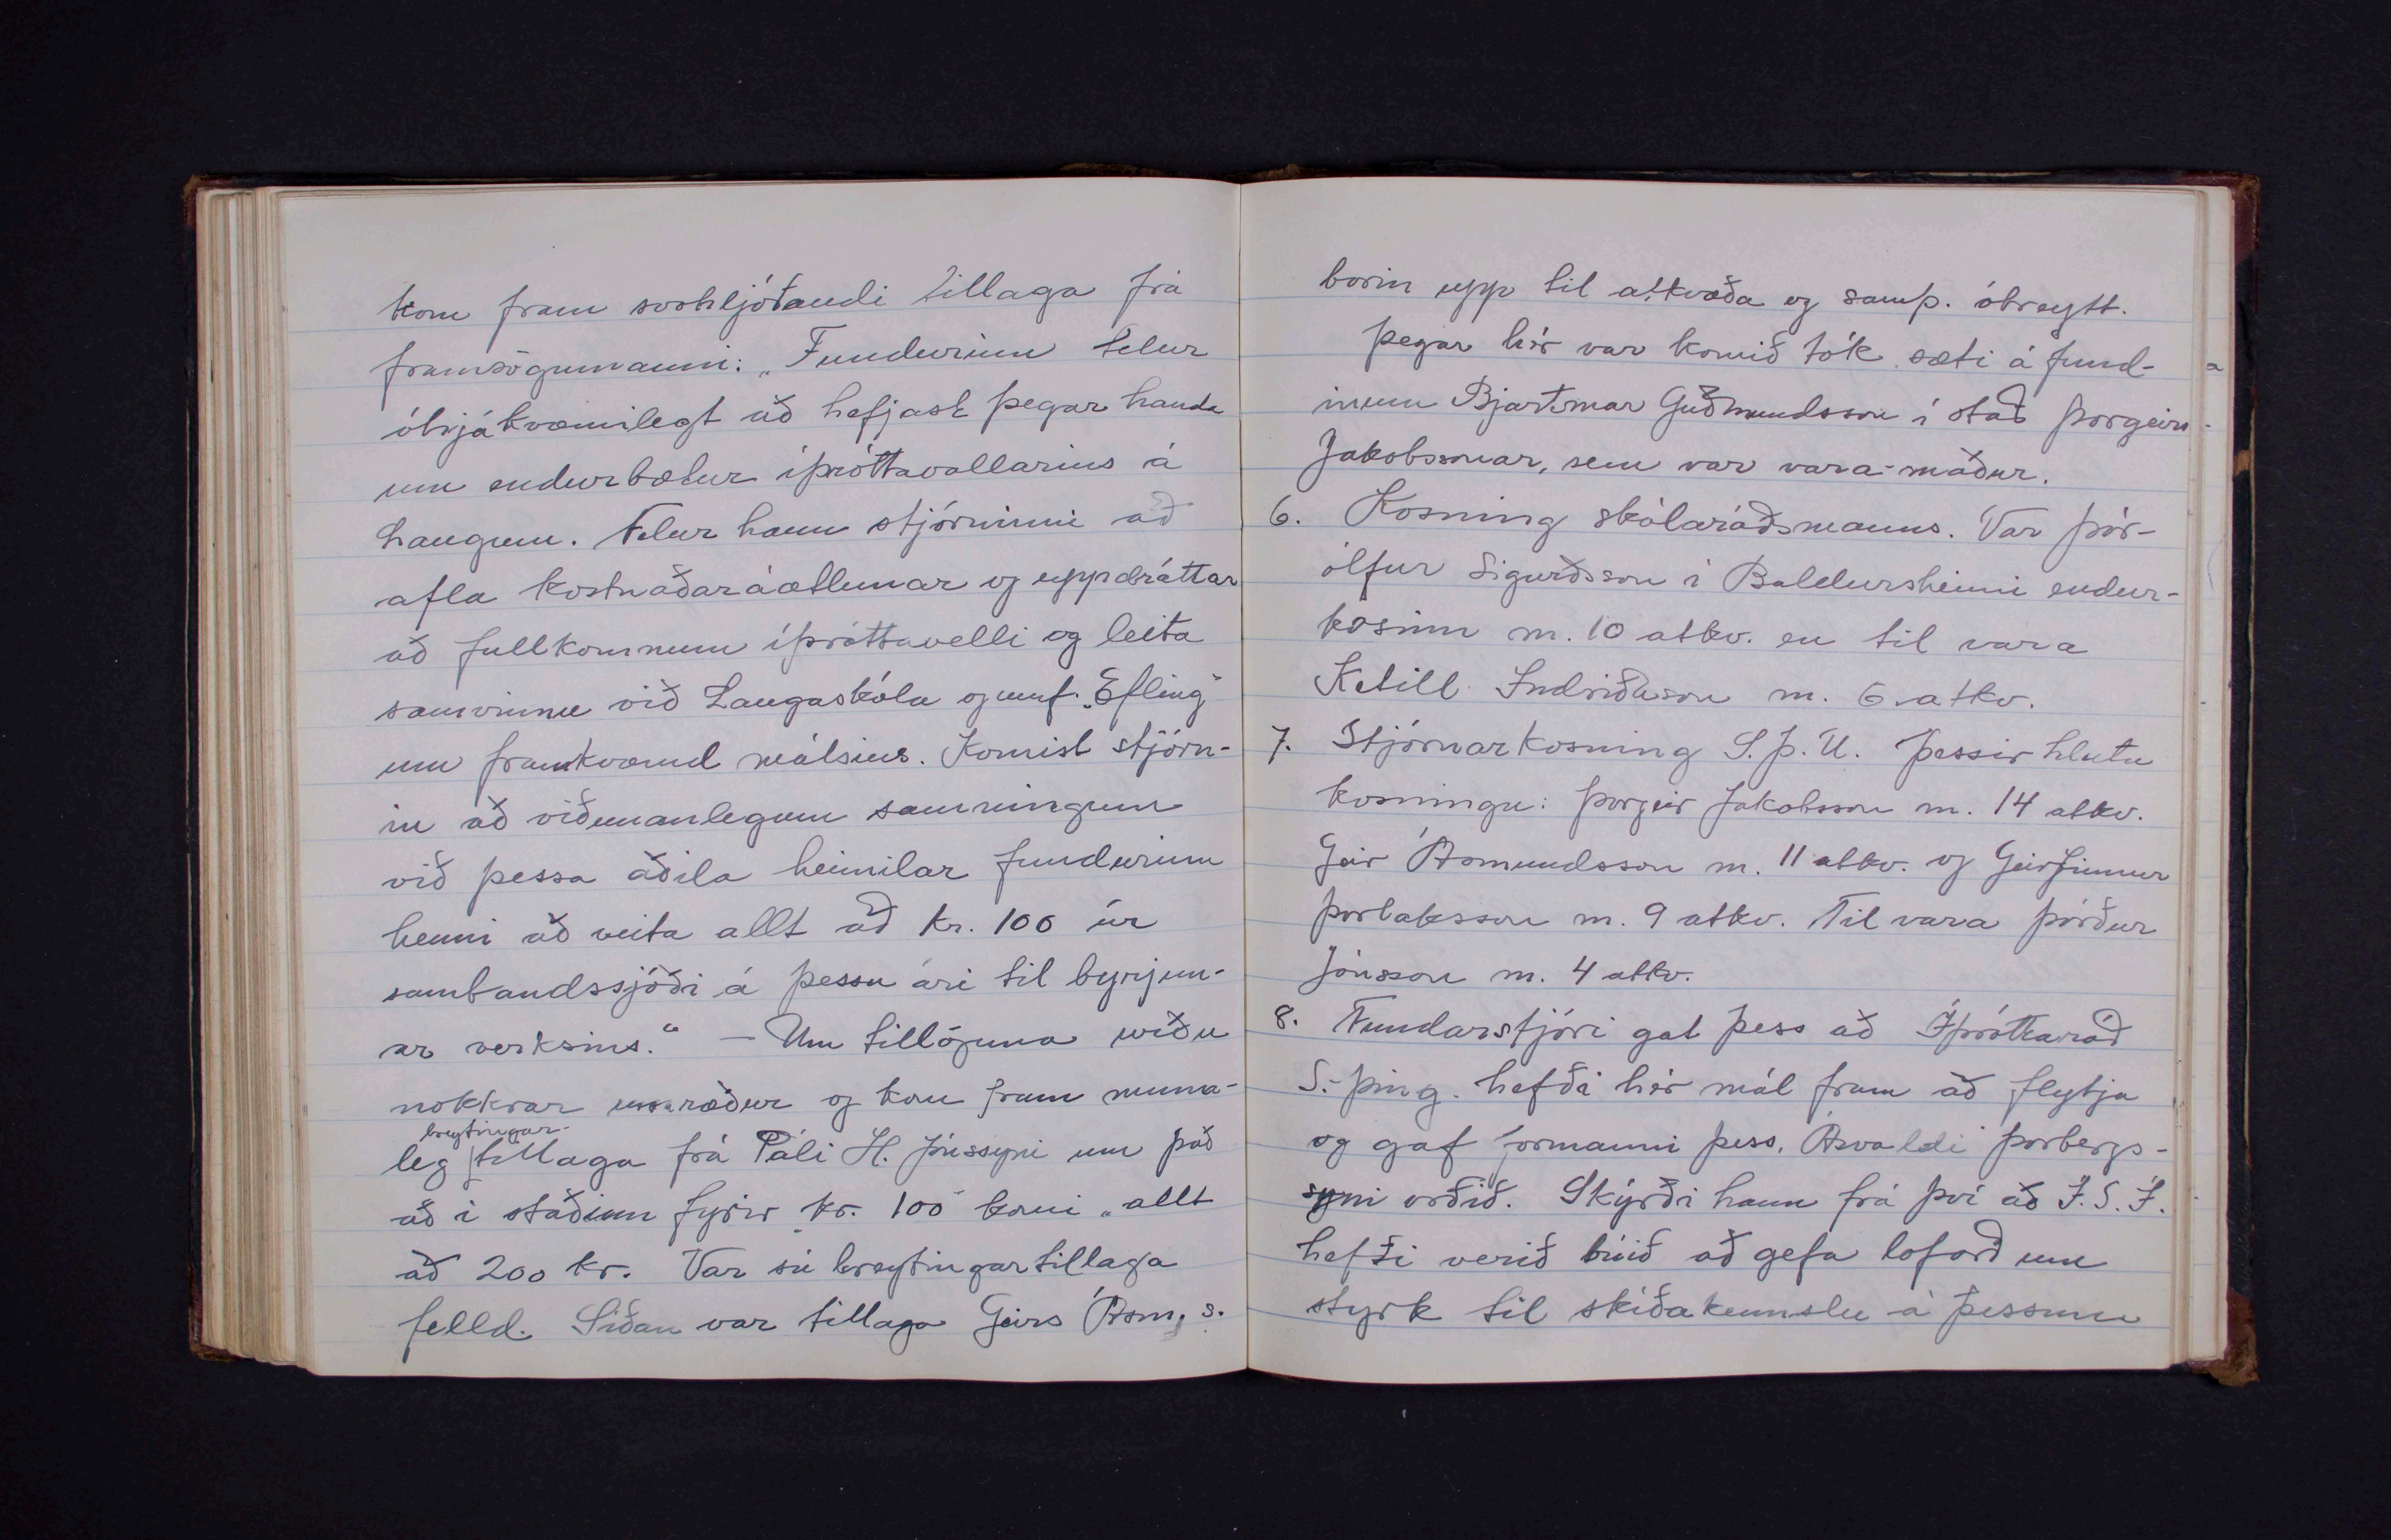 kom fram svohljóðandi tillaga frá
framsögumanni: „Fundurinn telur
óhjákvæmilegt að hefjast þegar handa
um endurbætur íþróttavallarins á
Laugum. Felur hann stjórninni að
afla kostnaðaráætlunar og uppdráttar
að fullkomnum íþróttavelli og leita
samvinnu við Laugaskóla og umf. „Efling"
um framkvæmd málsins. Komist stjórn-
in að viðunanlegum samningum
við þessa aðila heimilar fundurinn
henni að veita allt að kr. 100 úr
sambandssjóði á þessu ári til byrjun-
ar verksins.“ — Um tillöguna urðu
nokkrar umræður og kom fram munn-
breytingar-
leg tillaga frá Páli H. Jónssyni um það
að í staðinn fyrir kr. 100 komi „allt
að 200 kr. Var sú breytingartillaga
felld. Síðan var tillaga Geirs Ásm.s.
borin upp til atkvæða og samþ. óbreytt.
Þegar hér var komið tók sæti á fund-
inum Bjartmar Guðmundsson í stað Þorgeirs
Jakobssonar, sem var vara-maður.
6. Kosning skólaráðsmanns. Var Þór-
ólfur Sigurðsson í Baldursheimi endur-
kosinn m. 10 atkv. en til vara
Ketill Indriðason m. 6 atkv.
7. Stjórnarkosning S.Þ.U. Þessir hlutu
kosningu: Þorgeir Jakobsson m. 14 atkv.
Geir Ásmundsson m. 11 atkv. og Geirfinnur
Þorlaksson m. 9 atkv. Til vara Þórður
Jónsson m. 4 atkv.
8. Fundarstjóri gat þess að Íþróttaráð
S.-Þing. hefði hér mál fram að flytja
og gaf formanni þess, Ásvaldi Þorbergs-
syni orðið. Skýrði hann frá því að Í.S.Í.
hefði verið búið að gefa loforð um
styrk til skíðakennslu á þessum